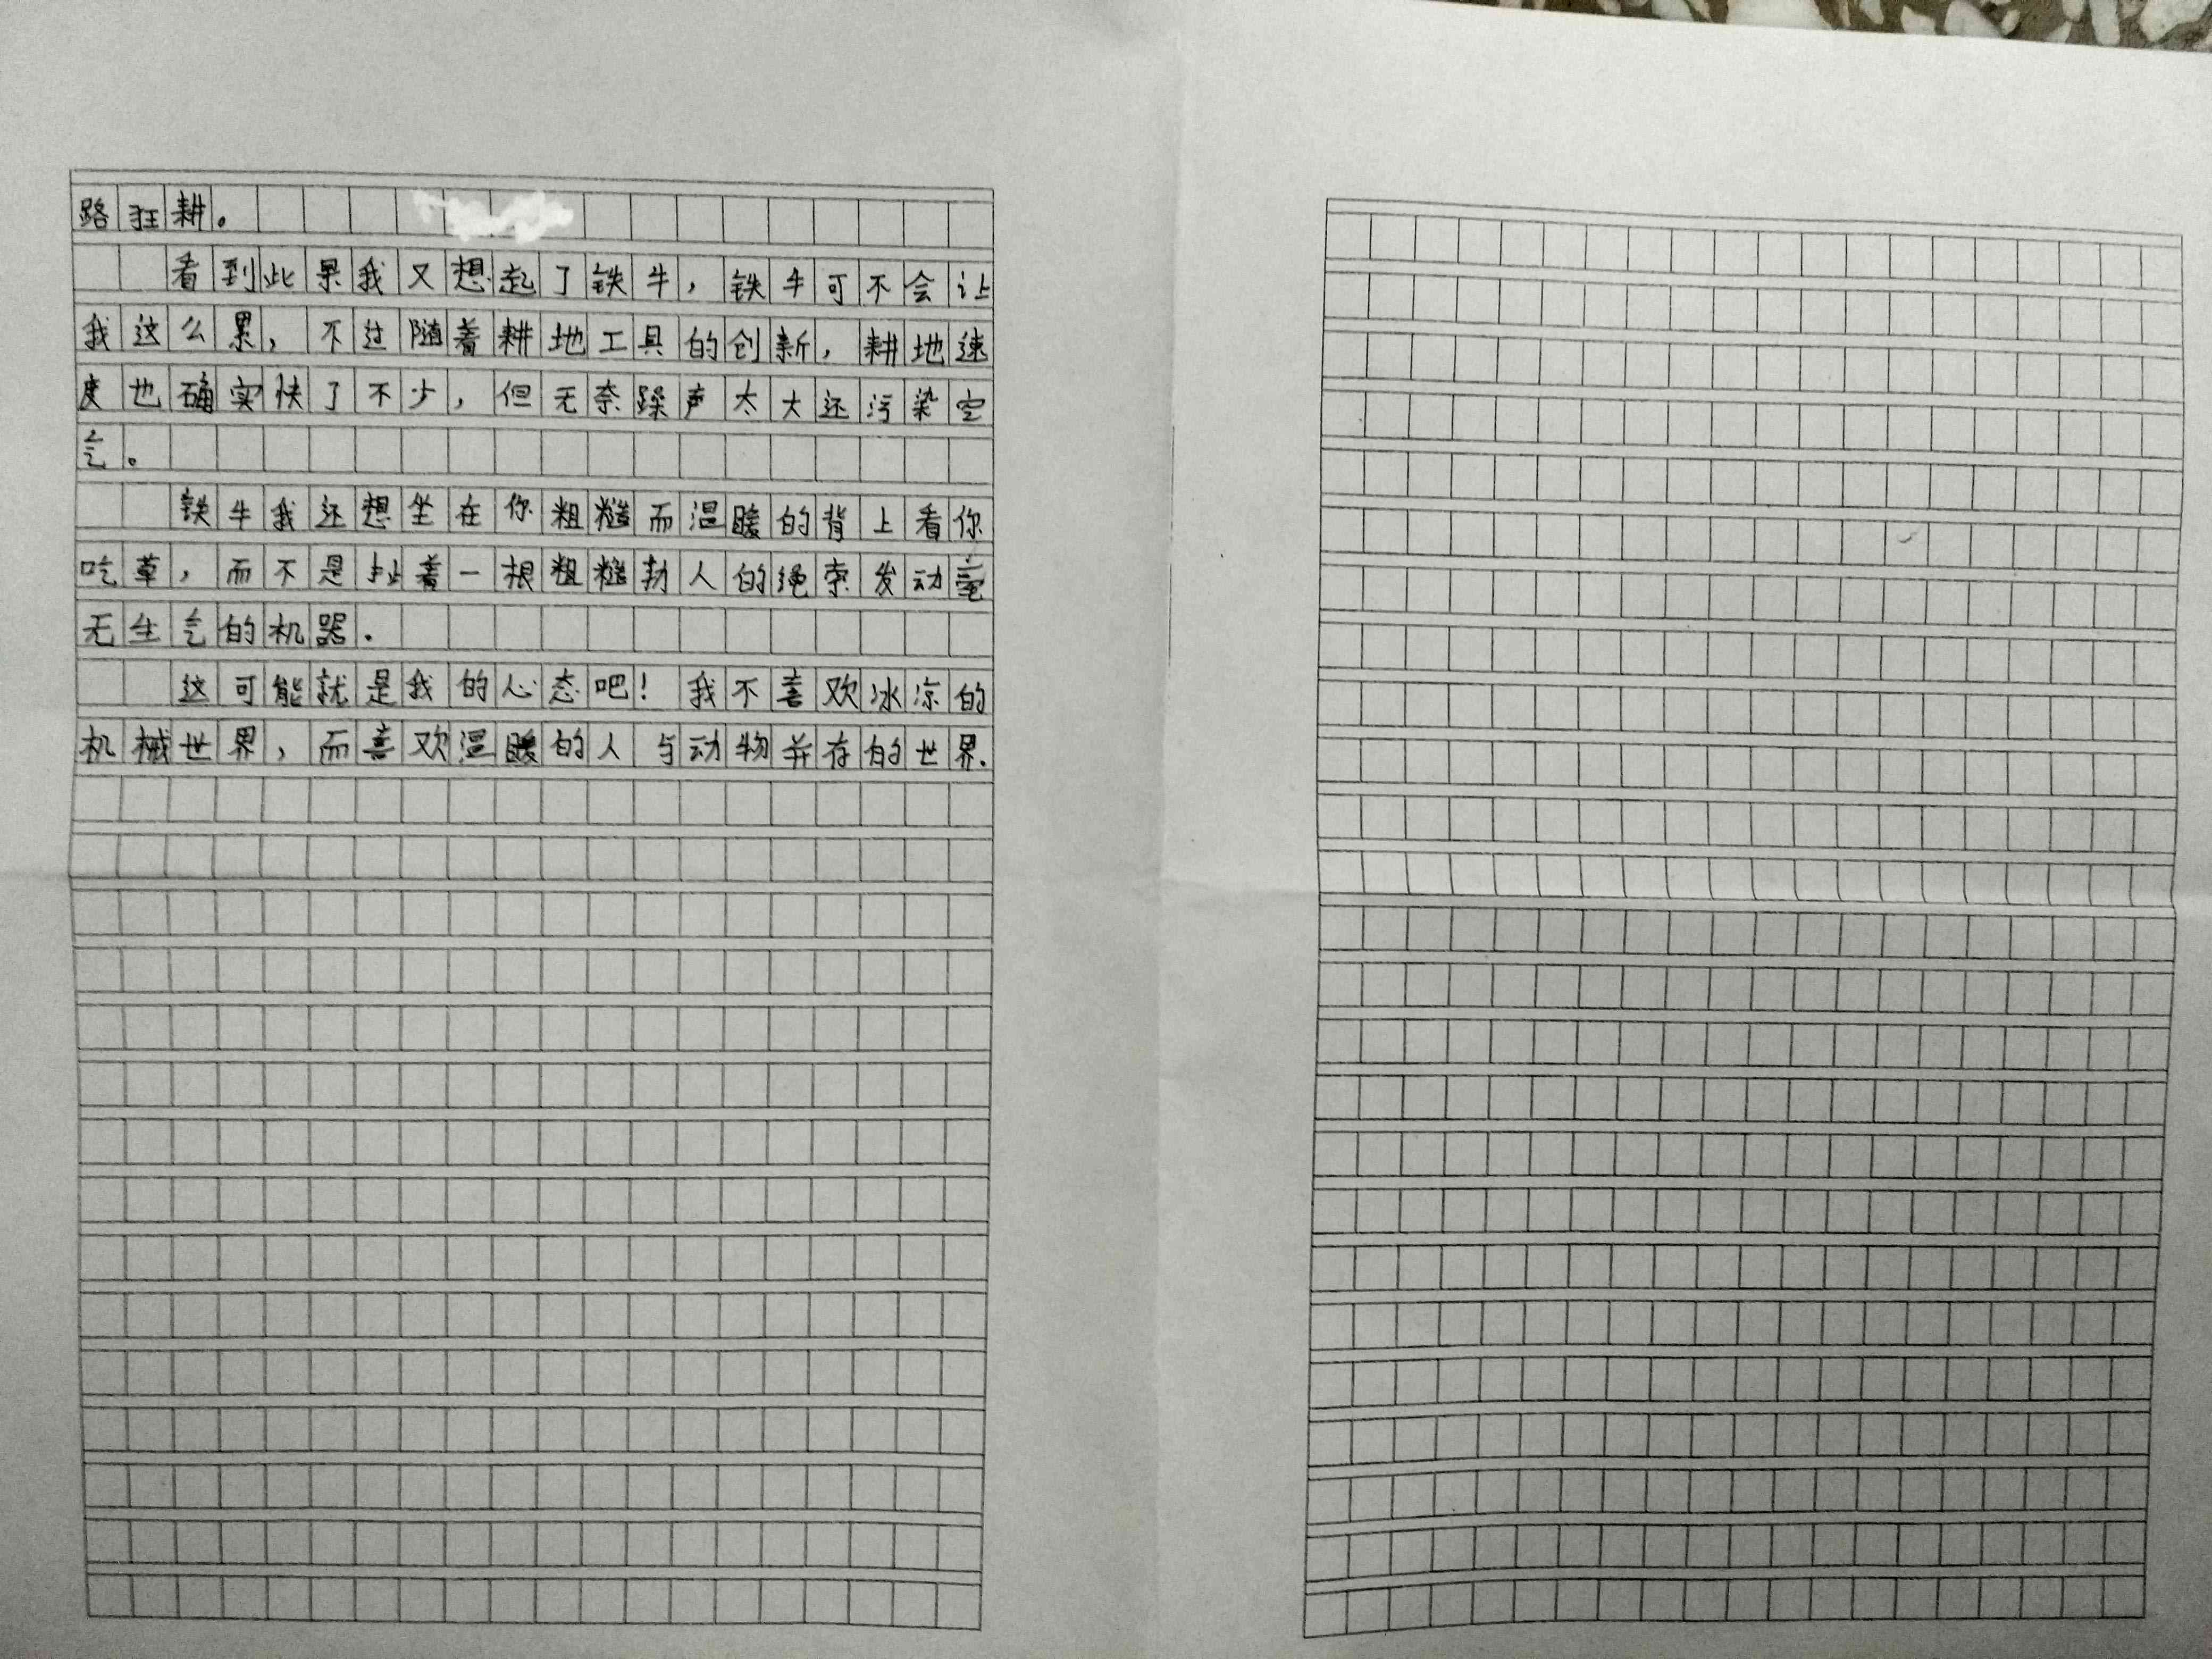 路狂耕。
看到此景我又想起了铁牛，铁牛可不会让
我这么累，不过随着耕地工具的创新，耕地速
度也确实快了不少，但无奈躁声太大还污染空
气。
铁牛我还想坐在你粗糙而温暖的背上看你
吃草，而不是扯着一根粗糙勒人的绳索发动毫
无生气的机器.
这可能就是我的心态吧！我不喜欢冰凉的
机械世界，而喜欢温暖的人与动物并存的世界.